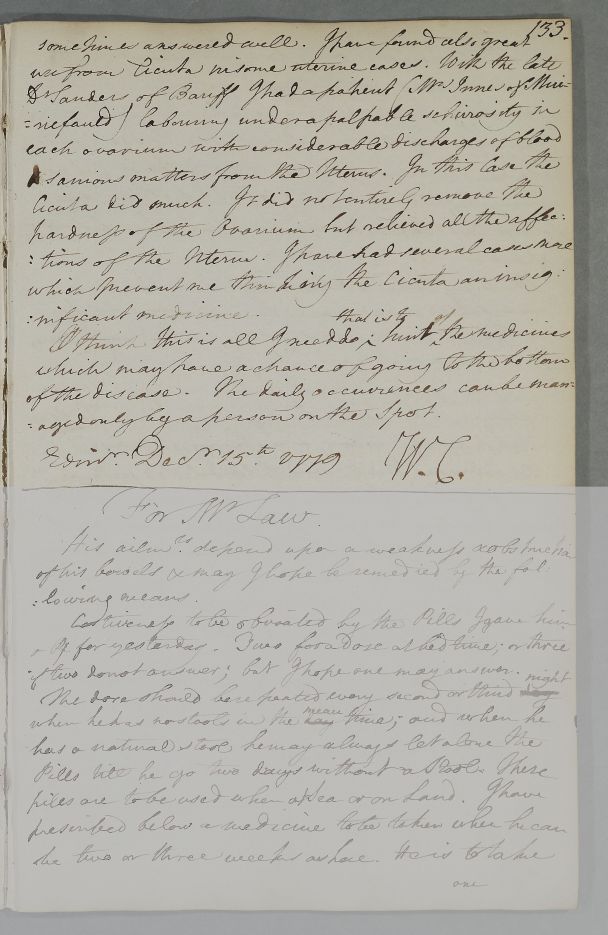 133.
sometimes answered well. I have found also great
use from Cicuta in some uterine cases. With the late
Dr Sanders of Banff I had a patient (Mrs Innes of Mui-
=riefauld) labouring under a palpable schirosity in
each ovarium with considerable discharges of blood
& sanious matters from the Uterus. In this Case the
Cicuta did much. It did not entirely remove the
hardness of the Ovarium but relieved all the affec:
:tions of the Uterus. I have had several cases more
which prevent me thinking the Cicuta an insig:
:nificant medicine.
I think this is all I need do; that is to hint of the medicines
which may have a chance of going to the bottom
of the disease. The daily occurrences can be man=
=aged only by a person on the Spot.
Edinr. Decr. 15th. 1779 W.C.
For Mr Law.
His ailmts. depend upon a weakness & obstructio
of his bowels & may I hope be remedied by the fol:
:lowing means.
Costiveness to be obviated by the Pills I gave him
for yesterday. Two for a Dose at bed time; or three
if two do not answer; but I hope one may answer.
The dose should be repeated every second or third night
when he has no stools in the mean time; and when he
has a natural stool he may always let alone the
Pills till he go two days without a Stool. These
piles are to be used when at Sea or on Land. I have
prescribed below a medicine to be taken when he can
be two or three weeks ashore. He is to take
one